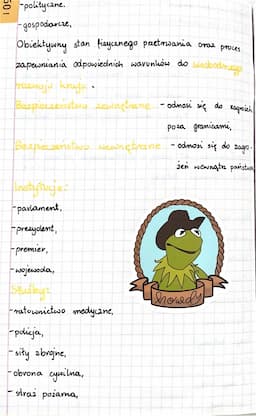 -polityczne.
-gospodarcze,
Obiektywny stan fizycznego przetrwania oraz proces
zapewniania odpowiednich warunków do swobodnego
rozwoju kraju.
Bezpieczeństwo zewnętrzne - odnosi się do zagrożeń
poza granicami,
Bezpieczeństwo wewnętrzne - odnosi się do zagro-
żeń wewnątrz państwa
Instytucje:
-parlament,
-prezydent,
-premier,
-wojewoda,
Służby:
-ratownictwo medyczne,
-policja,
-siły zbrojne,
-obrona cywilna,
-straż pożarna,
howdy